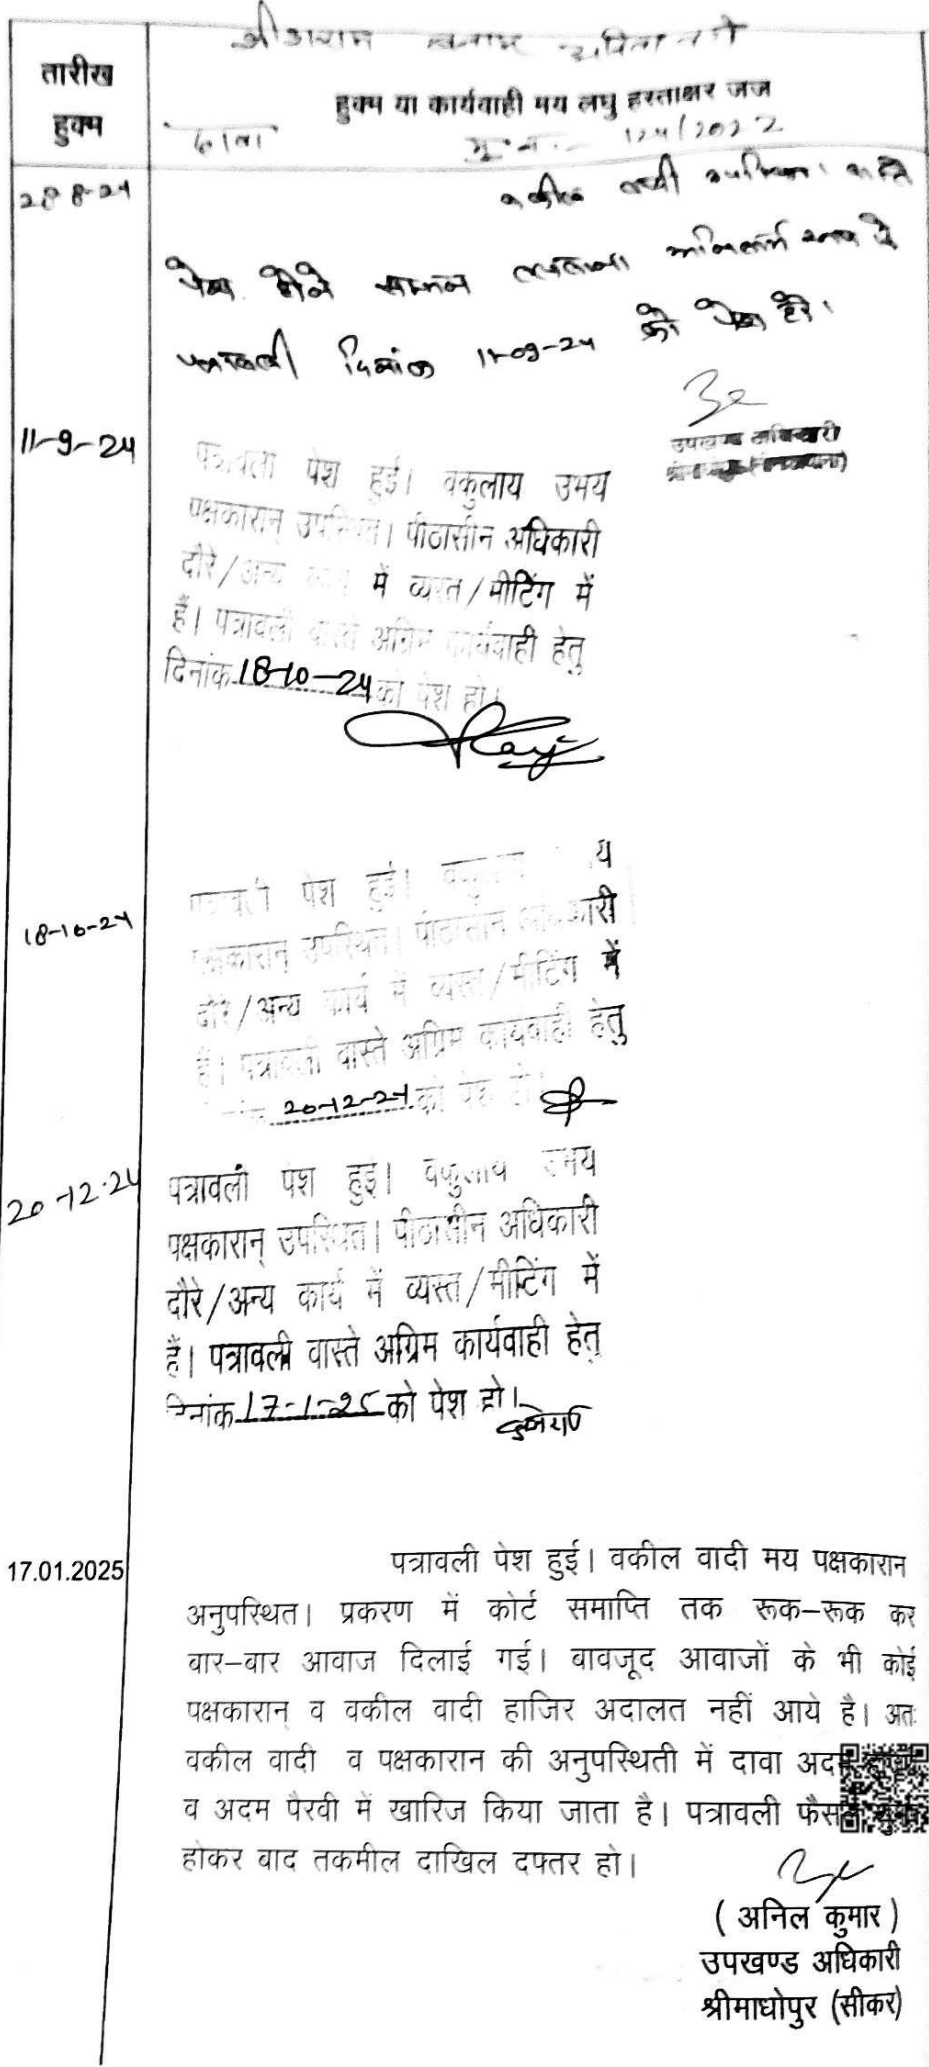 श्रीराम बनाम
तारीख हुक्म
हुक्म या कार्यवाही मय लघु हस्ताक्षर जज
दावा मु.न. 124/2022
28-8-24
वकील वादी उपस्थित।
पेश होने
पत्रावली दिनांक 11-09-24 को पेश हो।
उपखण्ड अधिकारी
11-9-24
पत्रावली पेश हुई। वकुलाय उभय
पक्षकारान् उपस्थित। पीठासीन अधिकारी
दौरे/अन्य कार्य में व्यस्त/मीटिंग में
हैं। पत्रावली वास्ते अग्रिम कार्यवाही हेतु
दिनांक 18-10-24 को पेश हो।
18-10-24
पत्रावली पेश हुई। वकुलाय उभय
पक्षकारान् उपस्थित। पीठासीन अधिकारी
दौरे/अन्य कार्य में व्यस्त/मीटिंग में
हैं। पत्रावली वास्ते अग्रिम कार्यवाही हेतु
दिनांक 20-12-24 को पेश हो।
20-12-24
पत्रावली पेश हुई। वकुलाय उभय
पक्षकारान् उपस्थित। पीठासीन अधिकारी
दौरे/अन्य कार्य में व्यस्त/मीटिंग में
हैं। पत्रावली वास्ते अग्रिम कार्यवाही हेतु
दिनांक 17-1-25 को पेश हो।
17.01.2025
पत्रावली पेश हुई। वकील वादी मय पक्षकारान
अनुपस्थित। प्रकरण में कोर्ट समाप्ति तक रूक-रूक कर
बार-बार आवाज दिलाई गई। बावजूद आवाजों के भी कोई
पक्षकारान् व वकील वादी हाजिर अदालत नहीं आये है। अतः
वकील वादी व पक्षकारान की अनुपस्थिती में दावा अदम
व अदम पैरवी में खारिज किया जाता है। पत्रावली फैसल शुमार
होकर बाद तकमील दाखिल दफ्तर हो।
(अनिल कुमार)
उपखण्ड अधिकारी
श्रीमाधोपुर (सीकर)